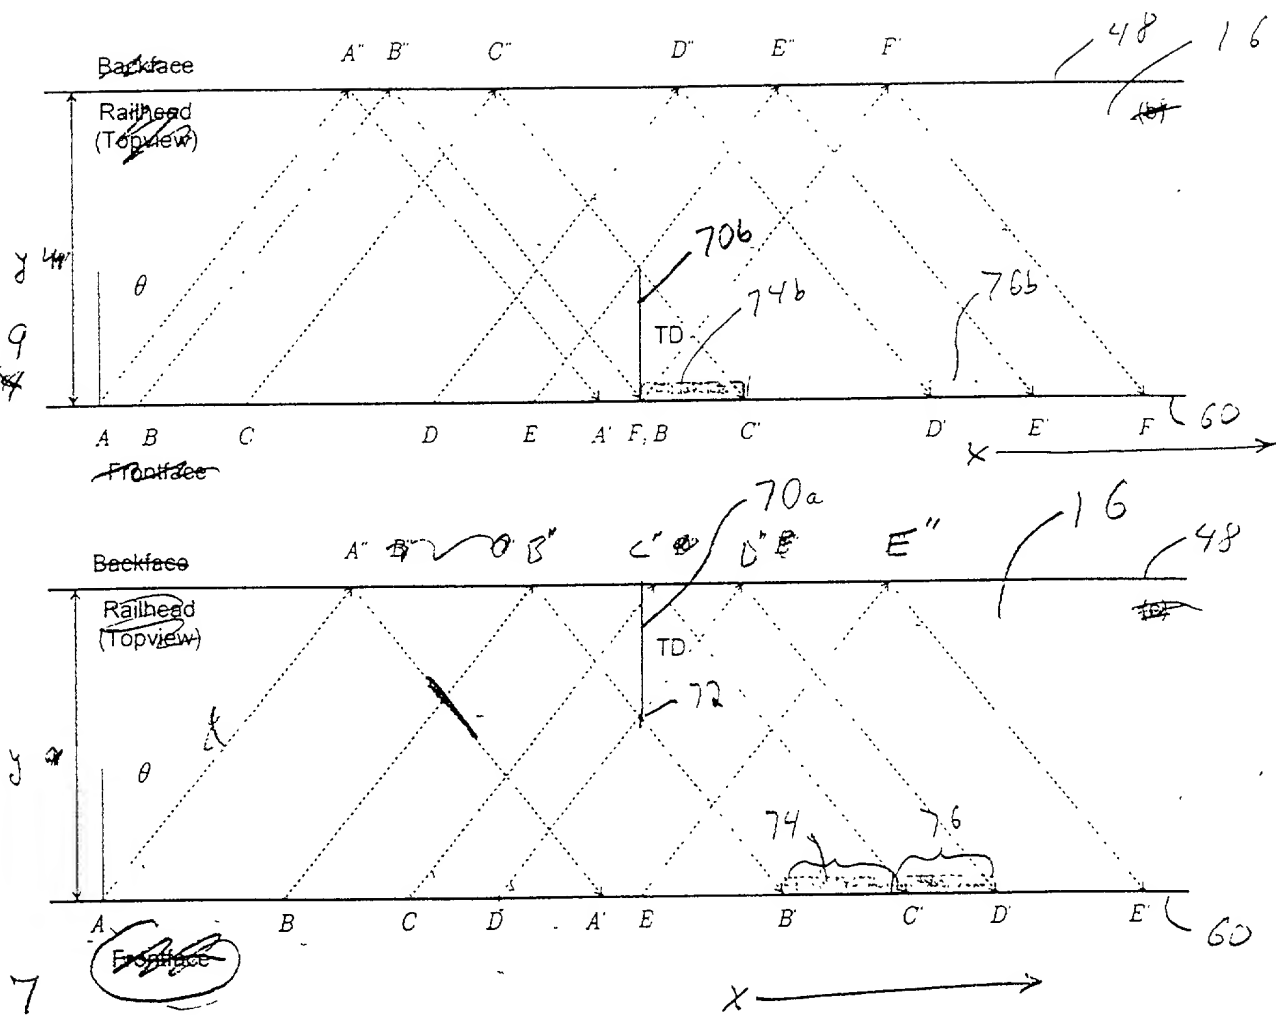 A" B" C" D" E" F' 48 16
Backface
Railhead
(Topview)
(b)
y
θ
70b
74b
76b
TD
9
A B C D E A' F, B C' D' E' F 60
X
Frontface
70a
16
48
Backface
A" B" C" D" E"
Railhead
(Topview)
TD
72
t
y
θ
74
76
A B C D A' E B' C' D' E' 60
Frontface
7
X